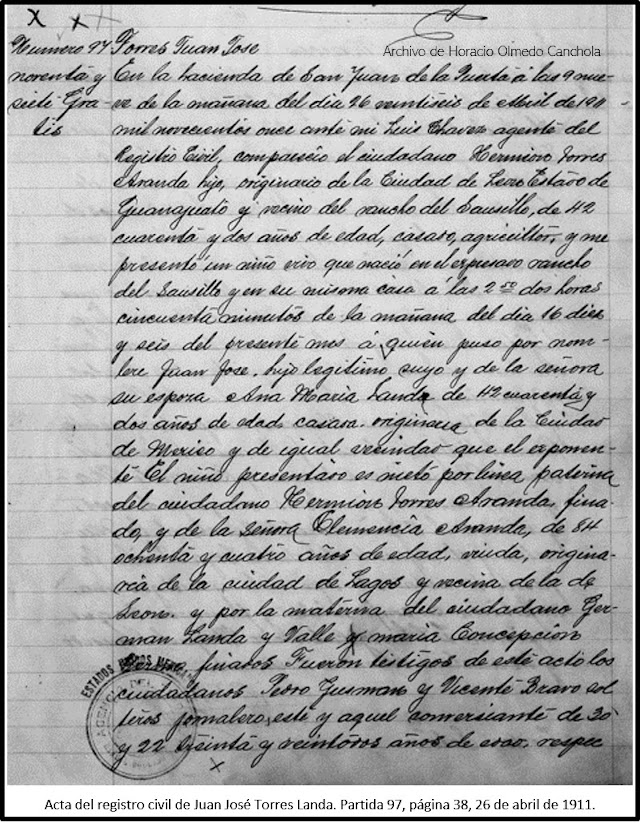 Archivo de Horacio Olmedo Canchola
Numero 97
noventa y
siete Gra-
tis
Torres Juan Jose
En la hacienda de San Juan de la Puerta á las 9 nue-
ve de la mañana del dia 26 veintiseis de Abril de 1911
mil novecientos once ante mi Luis Chavez agente del
Registro Civil, compareció el ciudadano Hermion Torres
Aranda hijo, originario de la Ciudad de Leon Estado de
Guanajuato y vecino del rancho del Sausillo, de 42
cuarenta y dos años de edad, casado, agricultor, y me
presentó un niño vivo que nació en el expresado rancho
del Sausillo y en su misma casa á las 2 50 dos horas
cincuenta minutos de la mañana del dia 16 diez
y seis del presente mes á quien puso por nom-
bre Juan Jose, hijo legitimo suyo y de la señora
su esposa Ana Maria Landa de 42 cuarenta y
dos años de edad, casada. originaria de la Ciudad
de Mexico y de igual vecindad que el exponen-
te El niño presentado es nieto por linea paterna
del ciudadano Hermion Torres Aranda, fina-
do, y de la Señora Clemencia Aranda, de 84
ochenta y cuatro años de edad, viuda, origina-
ria de la ciudad de Lagos y vecina de la de
Leon. y por la materna del ciudadano Ger-
man Landa y Valle y maria Concepcion
finados Fueron testigos de este acto los
ciudadanos Pedro Gusman y Vicente Bravo sol-
teros jornalero este y aquel comersiante de 30
y 22 treinta y veintidos años de edad. respec
ESTADOS UNIDOS MEXICANOS
Acta del registro civil de Juan José Torres Landa. Partida 97, página 38, 26 de abril de 1911.